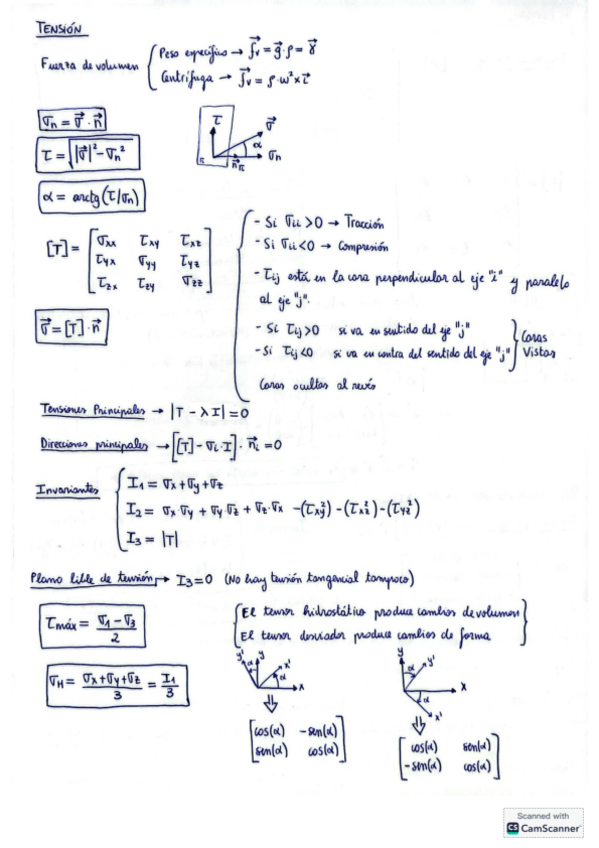 TENSIÓN
Fuerza de volumen { Peso específico → f⃗v = g⃗·ρ = γ⃗
Centrífuga → f⃗v = ρ·ω²×r⃗
σn = σ⃗·n⃗
τ = √(|σ⃗|² - σn²)
α = arctg(τ/σn)
τ σ⃗ α n⃗π σn π
[T] = [σxx τxy τxz
τyx σyy τyz
τzx τzy σzz]
σ⃗ = [T]·n⃗
- Si σii > 0 → Tracción
- Si σii < 0 → Compresión
- τij está en la cara perpendicular al eje "i" y paralelo
al eje "j".
- Si τij > 0 si va en sentido del eje "j"
- Si τij < 0 si va en contra del sentido del eje "j" } Caras Vistas
Caras ocultas al revés
Tensiones Principales → |T - λI| = 0
Direcciones principales → [[T] - σi·I]·n⃗i = 0
Invariantes { I1 = σx + σy + σz
I2 = σx·σy + σy·σz + σz·σx - (τxy²) - (τxz²) - (τyz²)
I3 = |T|
Plano libre de tensión → I3 = 0 (No hay tensión tangencial tampoco)
τmáx = (σ1 - σ3)/2
{ El tensor hidrostático produce cambios de volumen
El tensor desviador produce cambios de forma }
σH = (σx + σy + σz)/3 = I1/3
y' y x' α α x
[cos(α) -sen(α)
sen(α) cos(α)]
y y' α x α x'
[cos(α) sen(α)
-sen(α) cos(α)]
Scanned with
CS CamScanner